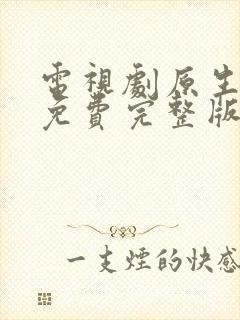 電視劇原生
免費完整版
一支煙的快感